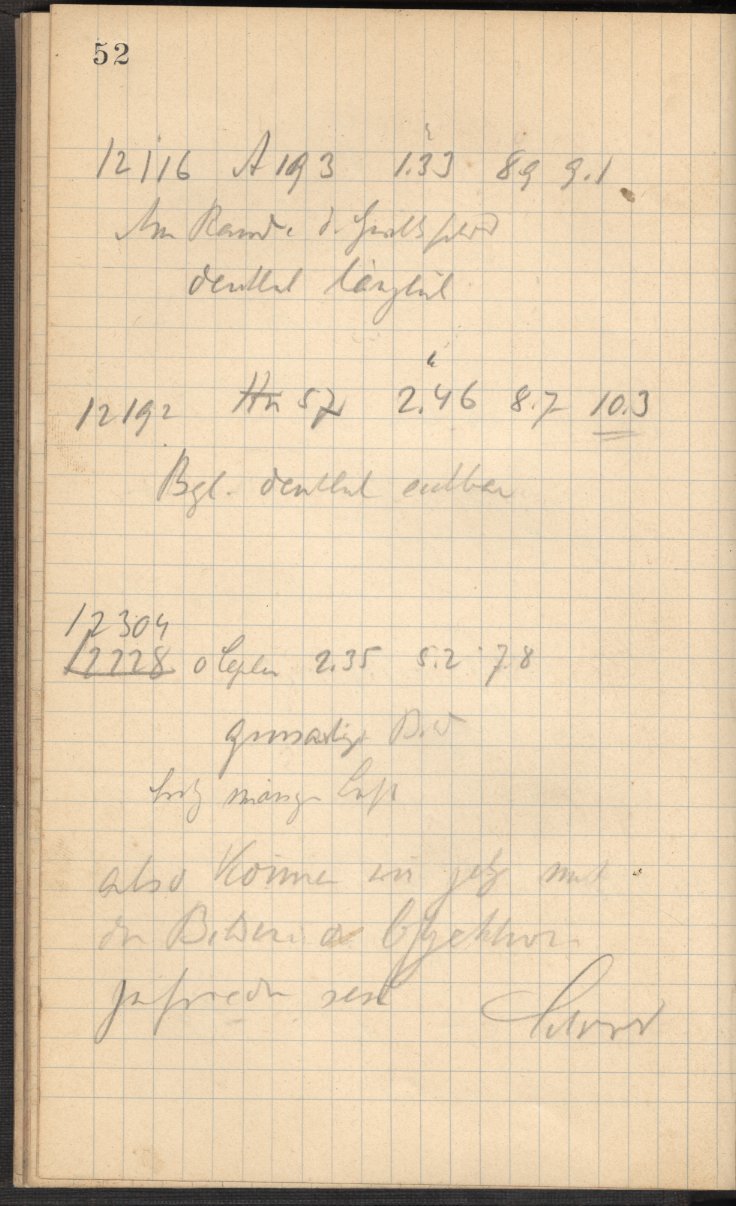 52
12116 A 193 1."33 8.9 9.1
Am Rande d. Gesichtsfeld
deutlich länglich
12192 Hu 57 2."46 8.7 10.3
Bgl. deutlich sichtbar
12304
12228 o Cephei 2.35 5.2 7.8
grossartiges Bild
trotz mässiger Luft
also können wir jetzt mit
den Bildern d Objektivs
zufrieden sein